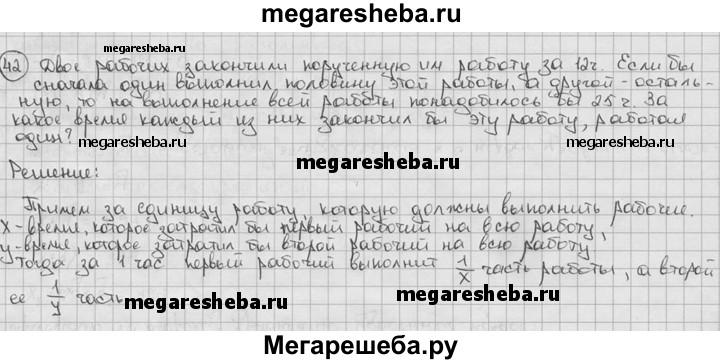 megaresheba.ru
42 Двое рабочих закончили порученную им работу за 12ч. Если бы
megaresheba.ru megaresheba.ru
сначала один выполнил половину этой работы, а другой - осталь-
ную, то на выполнение всей работы понадобилось бы 25 ч. За
какое время каждый из них закончил бы эту работу, работая
один?
megaresheba.ru megaresheba.ru
megaresheba.ru
Решение:
Примем за единицу работу, которую должны выполнить рабочие.
x - время, которое затратил бы первый рабочий на всю работу,
y - время, которое затратил бы второй рабочий на всю работу
Тогда за 1 час первый рабочий выполнит 1/x часть работы, а второй
ее 1/y часть
megaresheba.ru megaresheba.ru
Мегарешеба.ру